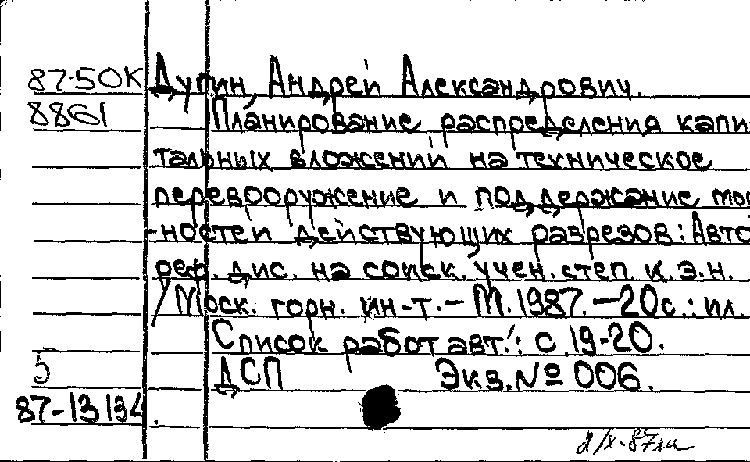 87-50К Дупин, Андрей Александрович.
8861 Планирование распределения капи-
тальных вложений на техническое
перевооружение и поддержание мощ
-ностей действующих разрезов: Авто
реф. дис. на соиск. учен. степ. к.э.н.
/Моск. горн. ин-т. – М. 1987. – 20с.: ил.
Список работ авт.: с. 19-20.
5 ДСП Экз. № 006.
87-13134.